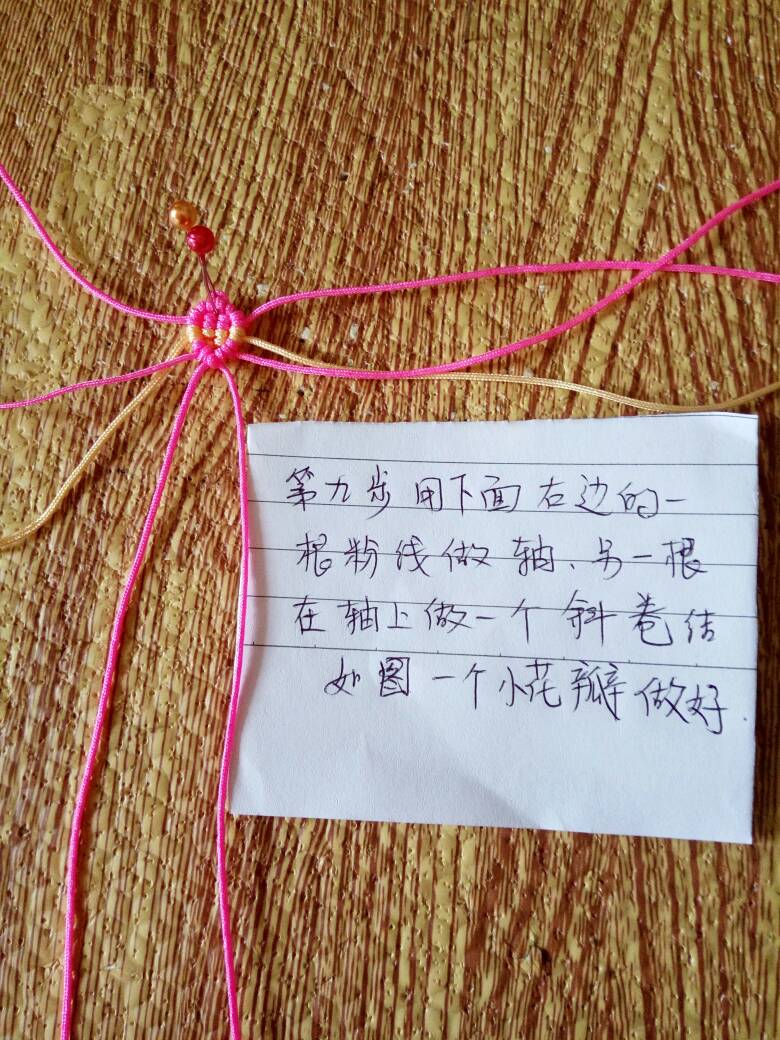 第九步用下面右边的一
根粉线做轴、另一根
在轴上做一个斜卷结
如图一个小花瓣做好.